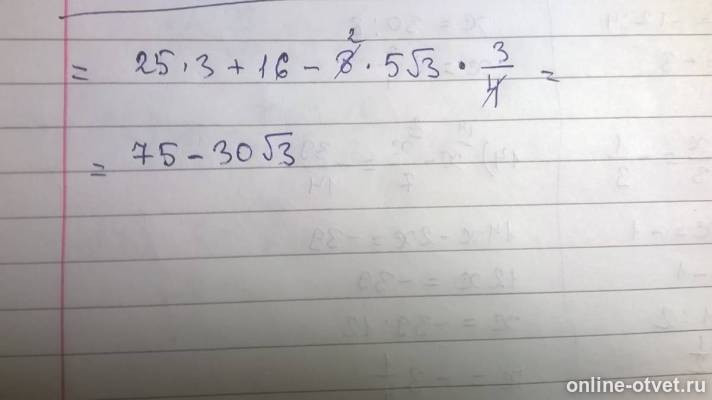 = 25·3 + 16 - 8 2 · 5√3 · 3/4 =
= 75 - 30√3
online-otvet.ru